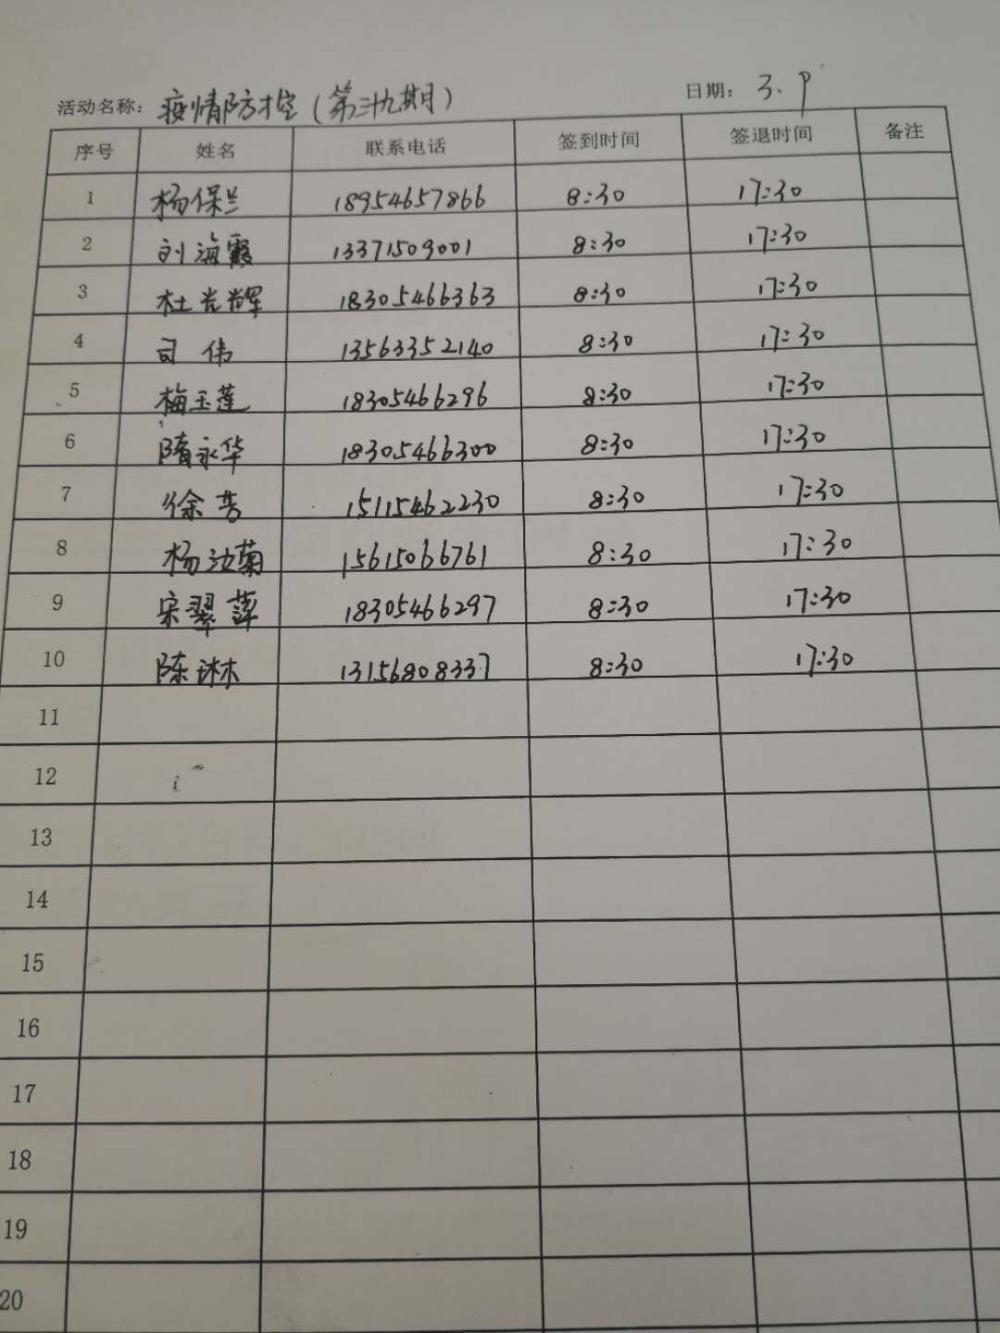 活动名称：疫情防控（第三十九期） 日期：3.9
序号 姓名 联系电话 签到时间 签退时间 备注
1 杨保兰 18954657866 8:30 17:30
2 刘海霞 13371509001 8:30 17:30
3 杜光辉 18305466363 8:30 17:30
4 司伟 13563352140 8:30 17:30
5 梅玉莲 18305466296 8:30 17:30
6 隋永华 18305466300 8:30 17:30
7 徐芳 15115462230 8:30 17:30
8 杨汝菊 15615066761 8:30 17:30
9 宋翠萍 18305466297 8:30 17:30
10 陈琳 13156808337 8:30 17:30
11
12
13
14
15
16
17
18
19
20